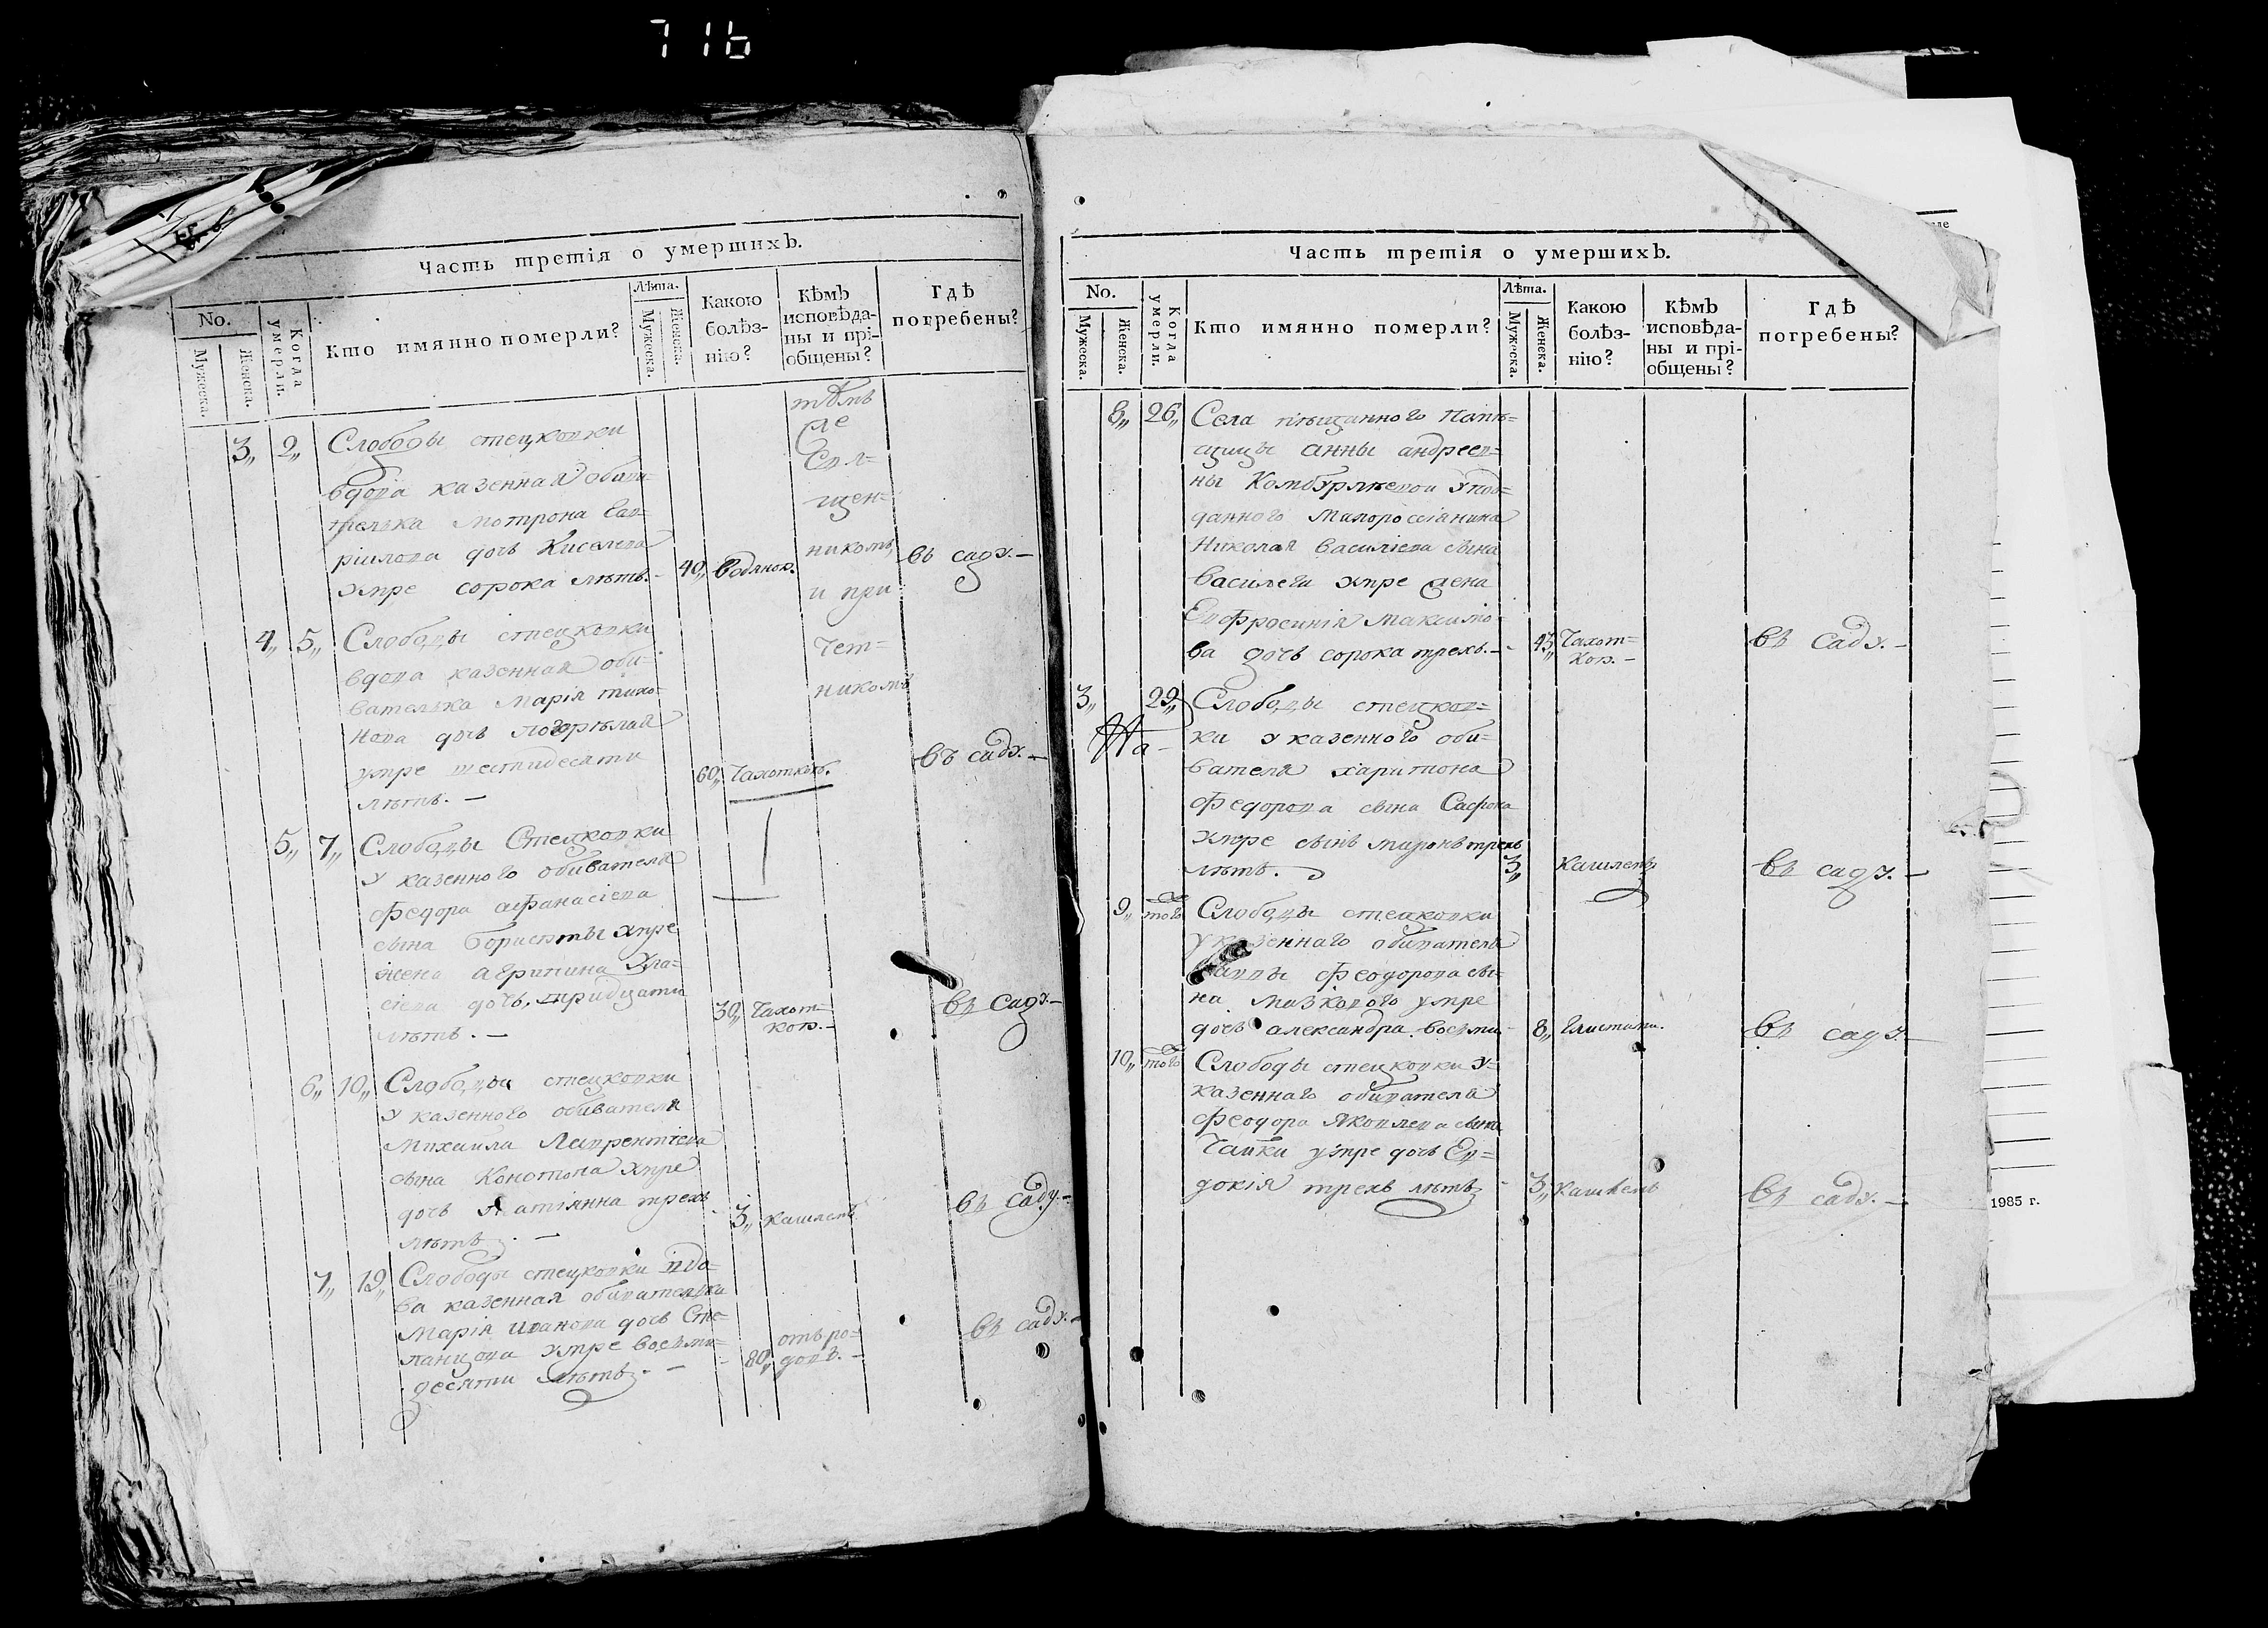 716
Часть третія о умершихЪ.
No.
Мужеска.
Женска.
Когда умерли.
Кто имянно померли?
Лѣта.
Мужеска.
Женска.
Какою болѣз-
нію?
КѢмЪ
исповѢда-
ны и прі-
общены?
ГдѢ
погребены?
3„ 2„ Слободы стецковки
вдова казенная обыва-
телька мотрона Гав-
ріилова дочь Киселева
умре сорока лѣтъ.- 40„ водянок. въ саду.-
тѣмъ
же
Свя-
щен-
никомъ
и при
чет-
никомъ
4„ 5„ Слободы стецковки
вдова казенная оби-
вателька Марія тихо-
нова дочь погорѣлая
умре шестидесяти
лѣтъ.- 60„ Чахоткою. въ саду.-
5„ 7„ Слободы Стецковки
у казенного обивателя
Федора афанасіева
сына умре
жена агрипина Вла-
сіева дочь, тридцати
лѣтъ.- 30„ Чахот-
кою.- въ саду.-
6„ 10„ Слободы стецковки
у казенного обивателя
Михаила Лаврентіева
сына Конотопа умре
дочь татіянна трехъ
лѣтъ.- 3„ кашлемъ въ саду.-
7„ 19„ Слободы стецковки вдо-
ва казенная обивателька
Марія иванова дочь Сте-
панцова умре восьми-
десяти лѣтъ.- 80„ отъ ро-
довъ.- въ саду.-
Часть третія о умершихЪ.
No.
Мужеска.
Женска.
Когда умерли.
Кто имянно померли?
ЛѢта.
Мужеска.
Женска.
Какою
болѢз-
нію?
КѢмЪ
исповѢда-
ны и прі-
общены?
ГдѢ
погребены?
8„ 26„ Села пѣщанного помѣ-
щицы анны андреев-
ны Комбурлѣевой у под-
данного Малороссіянина
Николая василіева сына
умре жена
Евфросинія Максимо-
ва дочь сорока трехъ.- 43„ Чахот-
кою.- въ саду.-
3„ 29„ Слободы стецков-
ки у казенного оби-
вателя харитона
Федорова сына Сафона
умре сынъ миронъ трехъ
лѣтъ. 3„ кашлемъ въ саду.-
9„ того Слободы стецковки
у казеннаго обивателя
Феодорова сы-
на Мазкового умре
дочь александра восьми- 8„ Глистами. въ саду.-
10„ того Слободы стецковки у-
казеннаго обивателя
Феодора Яковлева сына
Чайки умре дочь Ев-
докія трехъ лѣтъ 3„ кашлемъ въ саду.-
1985 г.